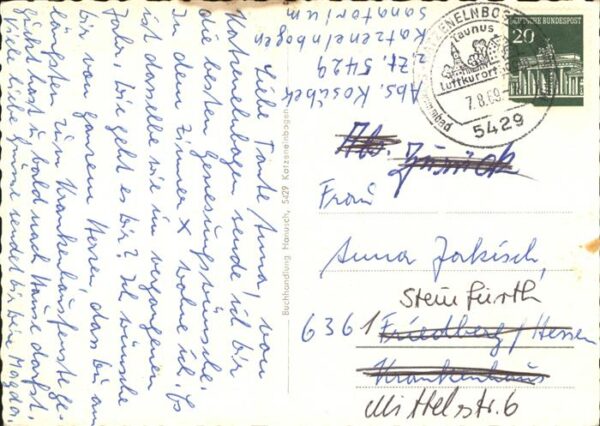 Liebe Tante Anna! Von
Katzenelnbogen sende ich dir
die besten Genesungswünsche.
In dem Zimmer x wohne ich. Es
ist dasselbe wie im vergangenen
Jahr. Wie geht es dir? Ich wünsche
dir von ganzem Herzen, dass du am
längsten zum Krankenhausfenster ge-
guckt hast u. bald nach Hause darfst.
Viel liebe Grüße sendet dir Magda.
Buchhandlung Hanusch, 5429 Katzenelnbogen
Abs. Kosubek
z. Zt. 5429
Katzenelnbogen
Sanatorium
KATZENELNBOGEN
Taunus
Luftkurort
7.8.69
5429
DEUTSCHE BUNDESPOST
20
Ab. Zurück
Frau
Anna Jakisch,
Steinfurth
6361 Friedberg/Hessen
Krankenhaus
Mittelstr. 6